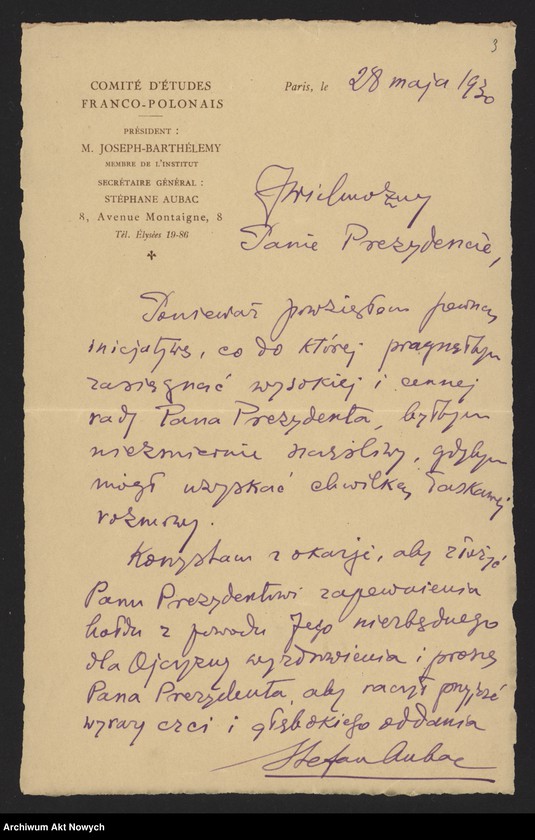 3
COMITÉ D'ÉTUDES
FRANCO-POLONAIS
PRÉSIDENT :
M. JOSEPH-BARTHÉLEMY
MEMBRE DE L'INSTITUT
SECRÉTAIRE GÉNÉRAL :
STÉPHANE AUBAC
8, Avenue Montaigne, 8
Tél. Élysées 19-86
Paris, le 28 maja 1930
JWielmożny
Panie Prezydencie,
Ponieważ powziąłem pewną
inicjatywę, co do której pragnąłbym
zasięgnąć wysokiej i cennej
rady Pana Prezydenta, byłbym
niezmiernie szczęśliwy, gdybym
mógł uzyskać chwilkę łaskawej
rozmowy.
Korzystam z okazji, aby złożyć
Panu Prezydentowi zapewnienia
hołdu z powodu Jego niezbędnego
dla Ojczyzny wyzdrowienia i proszę
Pana Prezydenta aby raczył przyjąć
wyrazy czci i głębokiego oddania
Stefan Aubac
Archiwum Akt Nowych